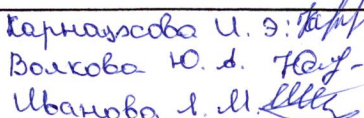 Карнаухова И. Э.:
Волкова Ю. А.
Иванова А. М.